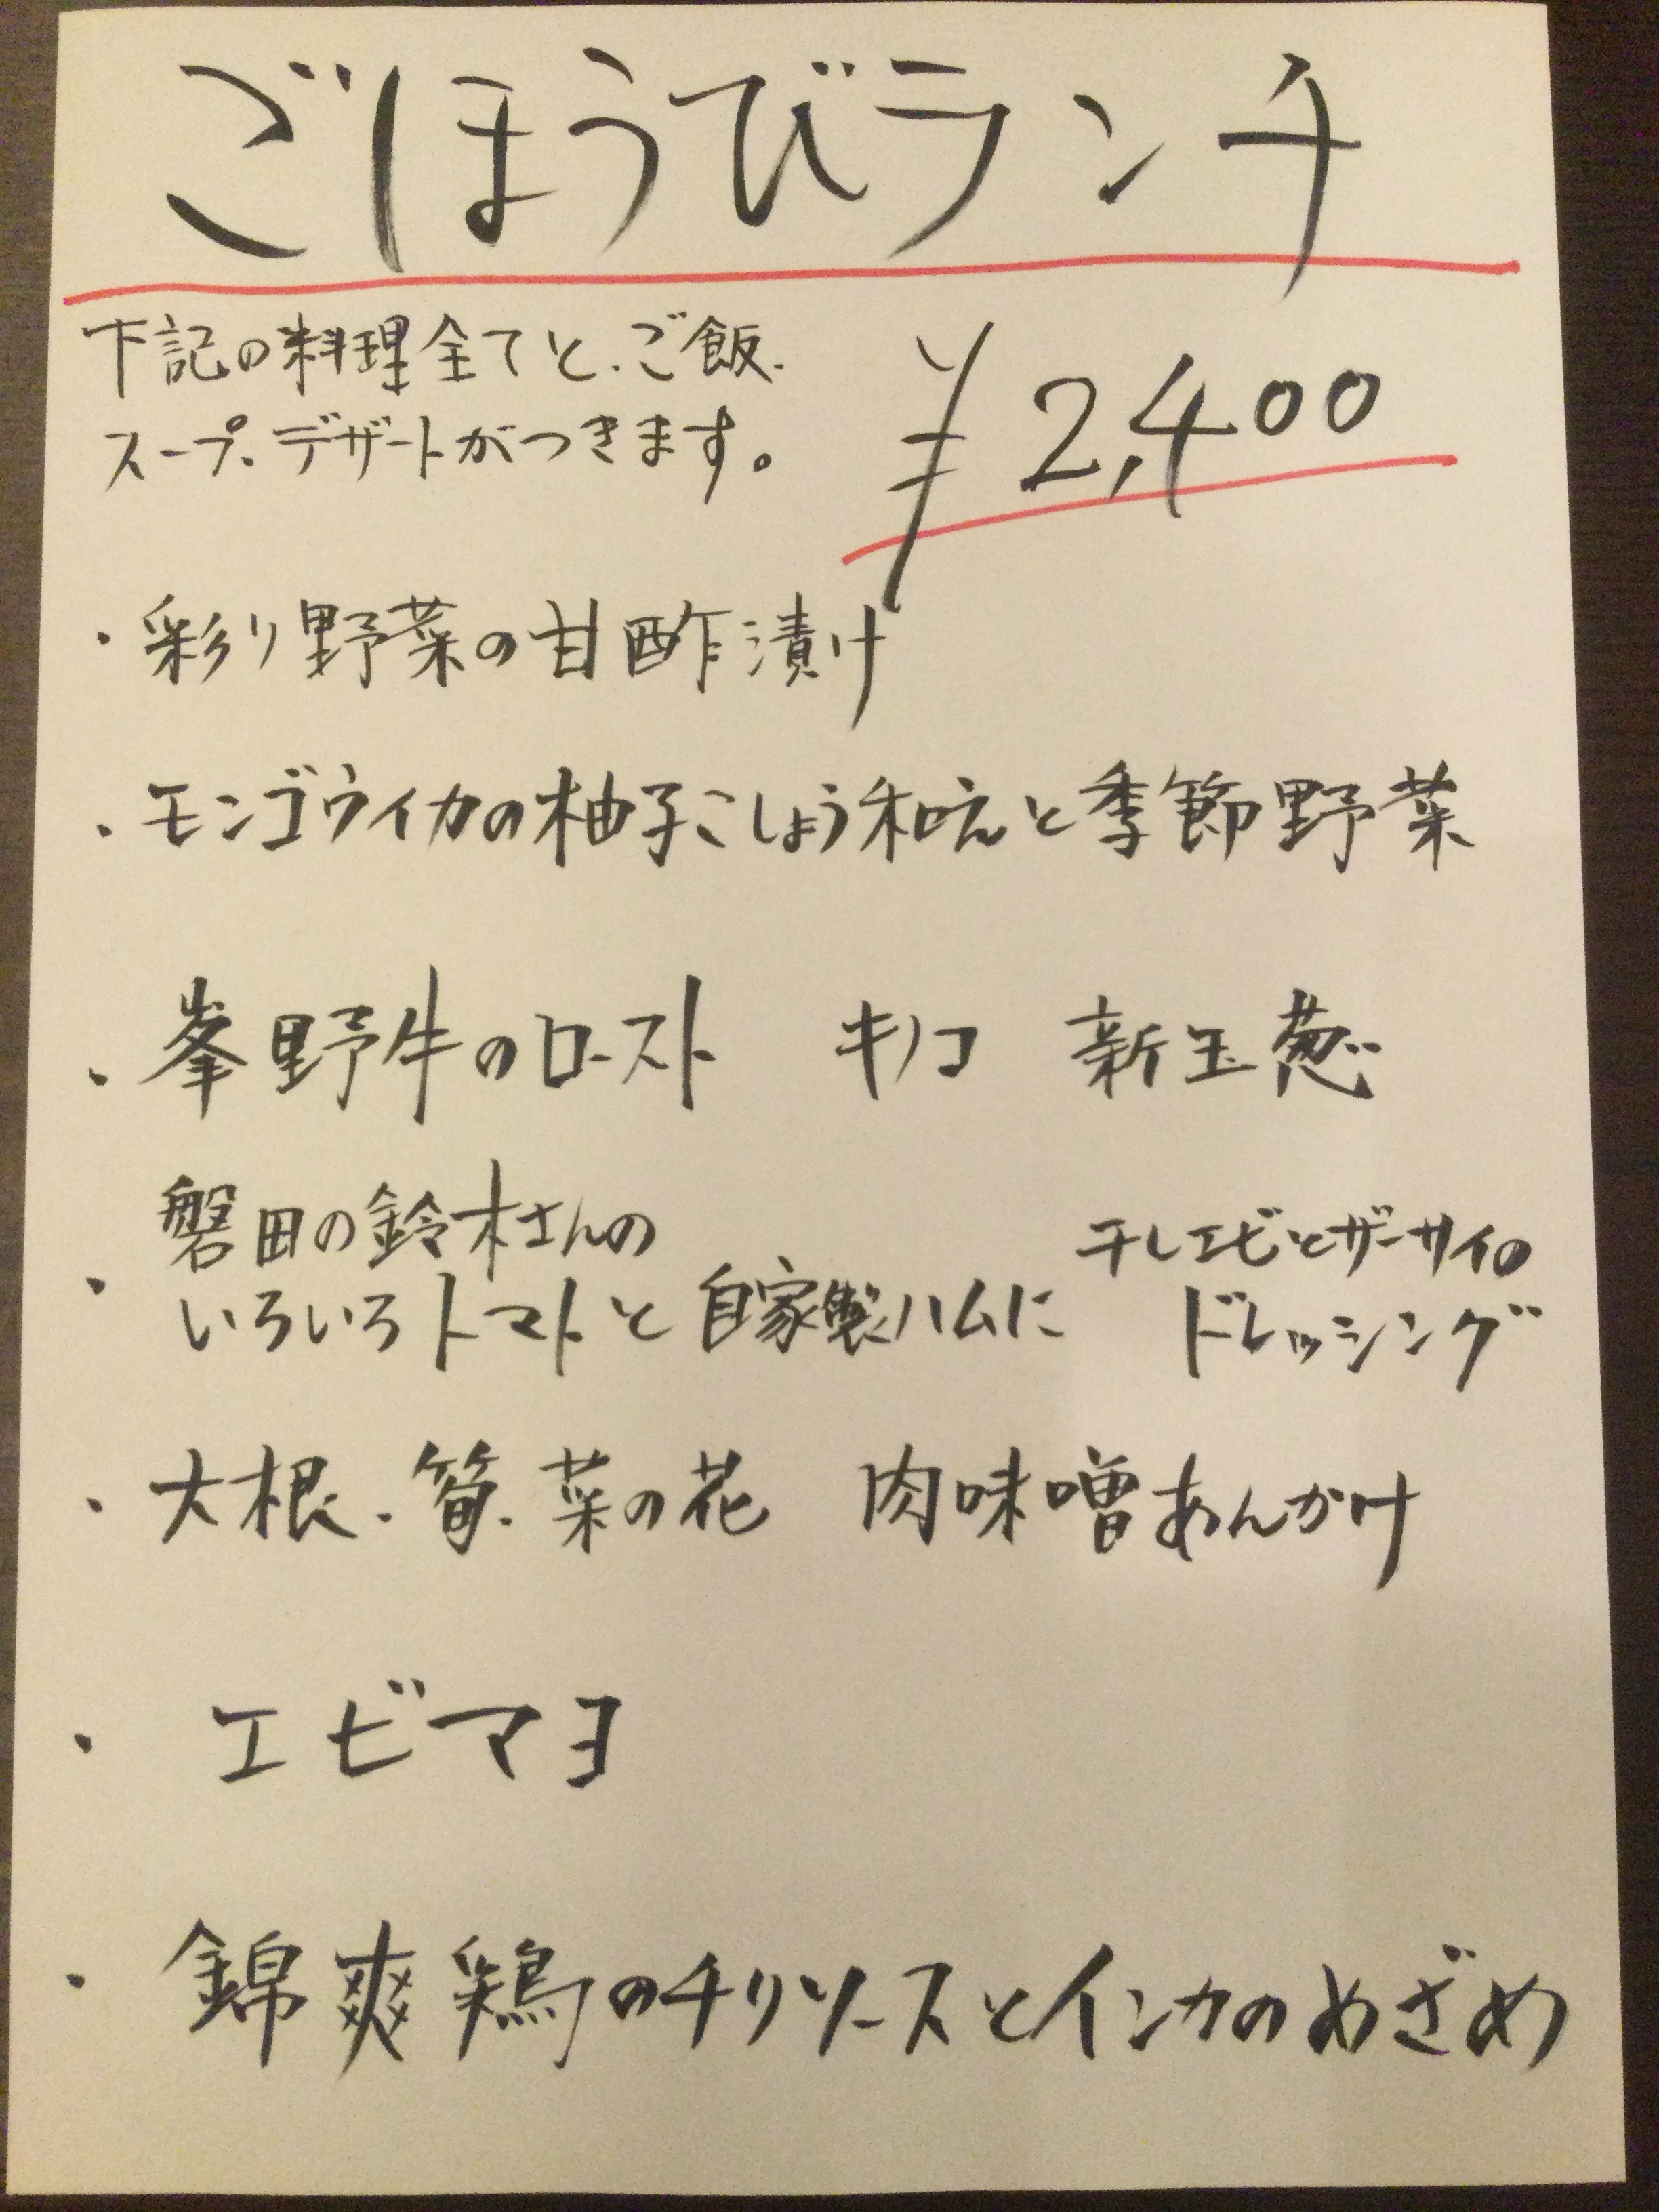 ごほうびランチ
下記の料理全てと、ご飯、
スープ、デザートがつきます。
¥2,400
・彩り野菜の甘酢漬け
・モンゴウイカの柚子こしょう和えと季節野菜
・峯野牛のロースト　キノコ　新玉葱
・磐田の鈴木さんの
いろいろトマトと自家製ハムに
干しエビとザーサイの
ドレッシング
・大根、筍、菜の花　肉味噌あんかけ
・エビマヨ
・錦爽鶏のチリソースとインカのめざめ